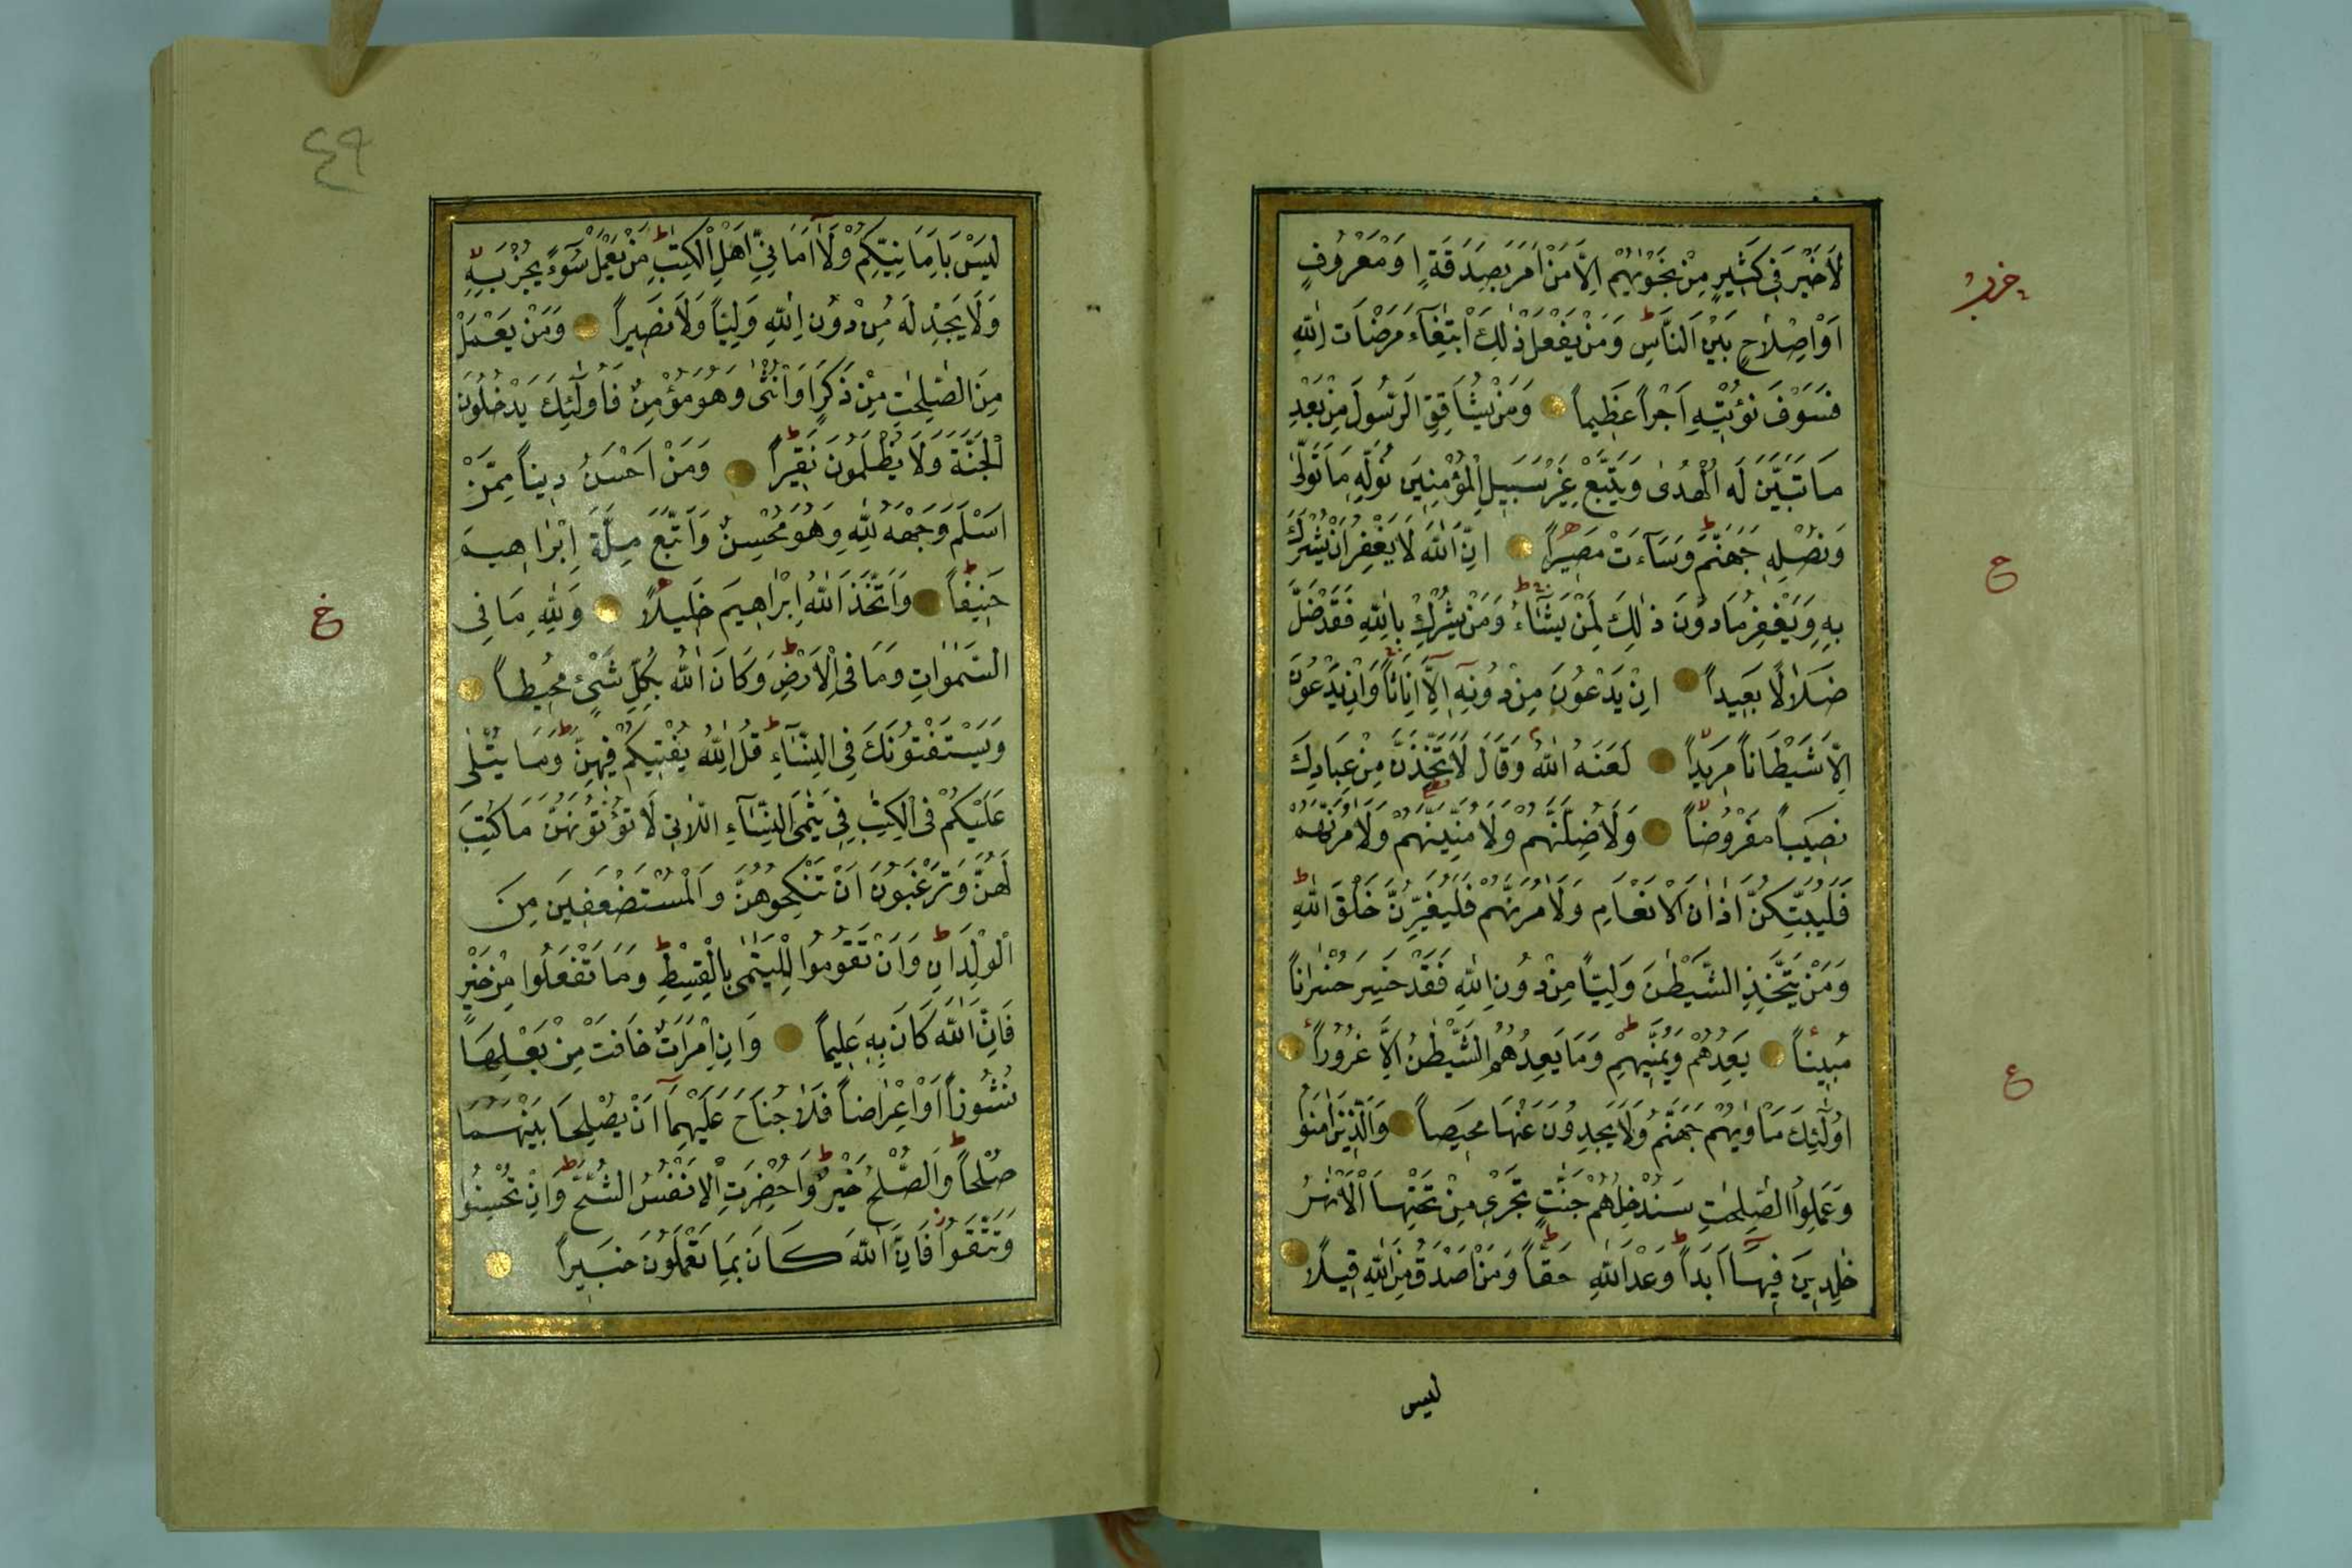 لَا خَيْرَ فِي كَثِيرٍ مِنْ نَجْوٰيهُمْ اِلَّا مَنْ اَمَرَ بِصَدَقَةٍ اَوْ مَعْرُوفٍ
حزب
اَوْ اِصْلَاحٍ بَيْنَ النَّاسِ ط وَمَنْ يَفْعَلْ ذٰلِكَ ابْتِغَاءَ مَرْضَاتِ اللّٰهِ
فَسَوْفَ نُؤْتِيهِ اَجْراً عَظِيماً وَمَنْ يُشَاقِقِ الرَّسُولَ مِنْ بَعْدِ
مَا تَبَيَّنَ لَهُ الْهُدٰى وَيَتَّبِعْ غَيْرَ سَبِيلِ الْمُؤْمِنِينَ نُوَلِّهِ مَا تَوَلّٰى
وَنُصْلِهِ جَهَنَّمَ ط وَسَآءَتْ مَصِيراً اِنَّ اللّٰهَ لَا يَغْفِرُ اَنْ يُشْرَكَ
ح
بِهِ وَيَغْفِرُ مَا دُونَ ذٰلِكَ لِمَنْ يَشَآءُ ط وَمَنْ يُشْرِكْ بِاللّٰهِ فَقَدْ ضَلَّ
ضَلَالًا بَعِيداً اِنْ يَدْعُونَ مِنْ دُونِهِ اِلَّا اِنَاثاً وَاِنْ يَدْعُونَ
اِلَّا شَيْطَاناً مَرِيداً لَعَنَهُ اللّٰهُ وَقَالَ لَاَتَّخِذَنَّ مِنْ عِبَادِكَ
نَصِيباً مَفْرُوضاً وَلَاُضِلَّنَّهُمْ وَلَاُمَنِّيَنَّهُمْ وَلَاٰمُرَنَّهُمْ
فَلَيُبَتِّكُنَّ اٰذَانَ الْاَنْعَامِ وَلَاٰمُرَنَّهُمْ فَلَيُغَيِّرُنَّ خَلْقَ اللّٰهِ ط
وَمَنْ يَتَّخِذِ الشَّيْطٰنَ وَلِيّاً مِنْ دُونِ اللّٰهِ فَقَدْ خَسِرَ خُسْرَاناً
مُبِيناً يَعِدُهُمْ وَيُمَنِّيهِمْ ط وَمَا يَعِدُهُمُ الشَّيْطٰنُ اِلَّا غُرُوراً
ع
اُولٰٓئِكَ مَاْوٰيهُمْ جَهَنَّمُ وَلَا يَجِدُونَ عَنْهَا مَحِيصاً وَالَّذِينَ اٰمَنُوا
وَعَمِلُوا الصّٰلِحٰتِ سَنُدْخِلُهُمْ جَنّٰتٍ تَجْرِي مِنْ تَحْتِهَا الْاَنْهٰرُ
خٰلِدِينَ فِيهَا اَبَداً ط وَعْدَ اللّٰهِ حَقّاً ط وَمَنْ اَصْدَقُ مِنَ اللّٰهِ قِيلًا
ليس
٤٩
لَيْسَ بِاَمَانِيِّكُمْ وَلَا اَمَانِيِّ اَهْلِ الْكِتٰبِ ط مَنْ يَعْمَلْ سُوءً يُجْزَ بِهِ
وَلَا يَجِدْ لَهُ مِنْ دُونِ اللّٰهِ وَلِيّاً وَلَا نَصِيراً وَمَنْ يَعْمَلْ
مِنَ الصّٰلِحٰتِ مِنْ ذَكَرٍ اَوْ اُنْثٰى وَهُوَ مُؤْمِنٌ فَاُولٰٓئِكَ يَدْخُلُونَ
الْجَنَّةَ وَلَا يُظْلَمُونَ نَقِيراً وَمَنْ اَحْسَنُ دِيناً مِمَّنْ
اَسْلَمَ وَجْهَهُ لِلّٰهِ وَهُوَ مُحْسِنٌ وَاتَّبَعَ مِلَّةَ اِبْرَاهِيمَ
حَنِيفاً ط وَاتَّخَذَ اللّٰهُ اِبْرَاهِيمَ خَلِيلًا وَلِلّٰهِ مَا فِي
السَّمٰوَاتِ وَمَا فِي الْاَرْضِ ط وَكَانَ اللّٰهُ بِكُلِّ شَيْءٍ مُحِيطاً
وَيَسْتَفْتُونَكَ فِي النِّسَآءِ ط قُلِ اللّٰهُ يُفْتِيكُمْ فِيهِنَّ ط وَمَا يُتْلٰى
عَلَيْكُمْ فِي الْكِتٰبِ فِي يَتٰمَى النِّسَآءِ اللَّاتِي لَا تُؤْتُونَهُنَّ مَا كُتِبَ
لَهُنَّ وَتَرْغَبُونَ اَنْ تَنْكِحُوهُنَّ وَالْمُسْتَضْعَفِينَ مِنَ
الْوِلْدَانِ ط وَاَنْ تَقُومُوا لِلْيَتٰمٰى بِالْقِسْطِ ط وَمَا تَفْعَلُوا مِنْ خَيْرٍ
فَاِنَّ اللّٰهَ كَانَ بِهِ عَلِيماً وَاِنِ امْرَاَتٌ خَافَتْ مِنْ بَعْلِهَا
نُشُوزاً اَوْ اِعْرَاضاً فَلَا جُنَاحَ عَلَيْهِمَآ اَنْ يُصْلِحَا بَيْنَهُمَا
صُلْحاً ط وَالصُّلْحُ خَيْرٌ ط وَاُحْضِرَتِ الْاَنْفُسُ الشُّحَّ ط وَاِنْ تُحْسِنُوا
وَتَتَّقُوا فَاِنَّ اللّٰهَ كَانَ بِمَا تَعْمَلُونَ خَبِيراً